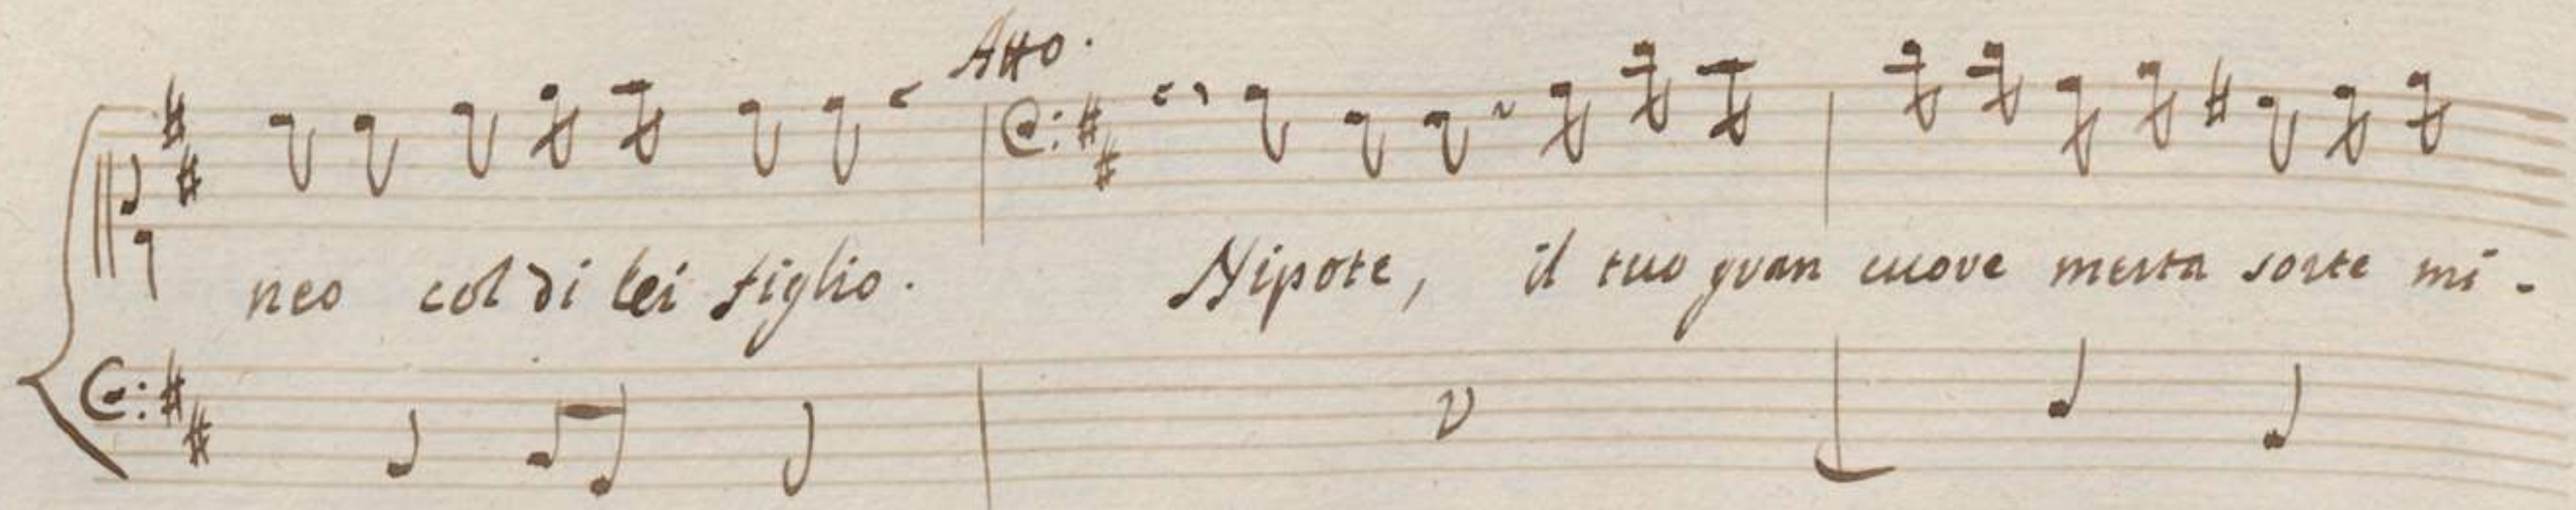 Atto.
neo col di lei figlio. Nipote, il tuo gran cuore merta sorte mi-